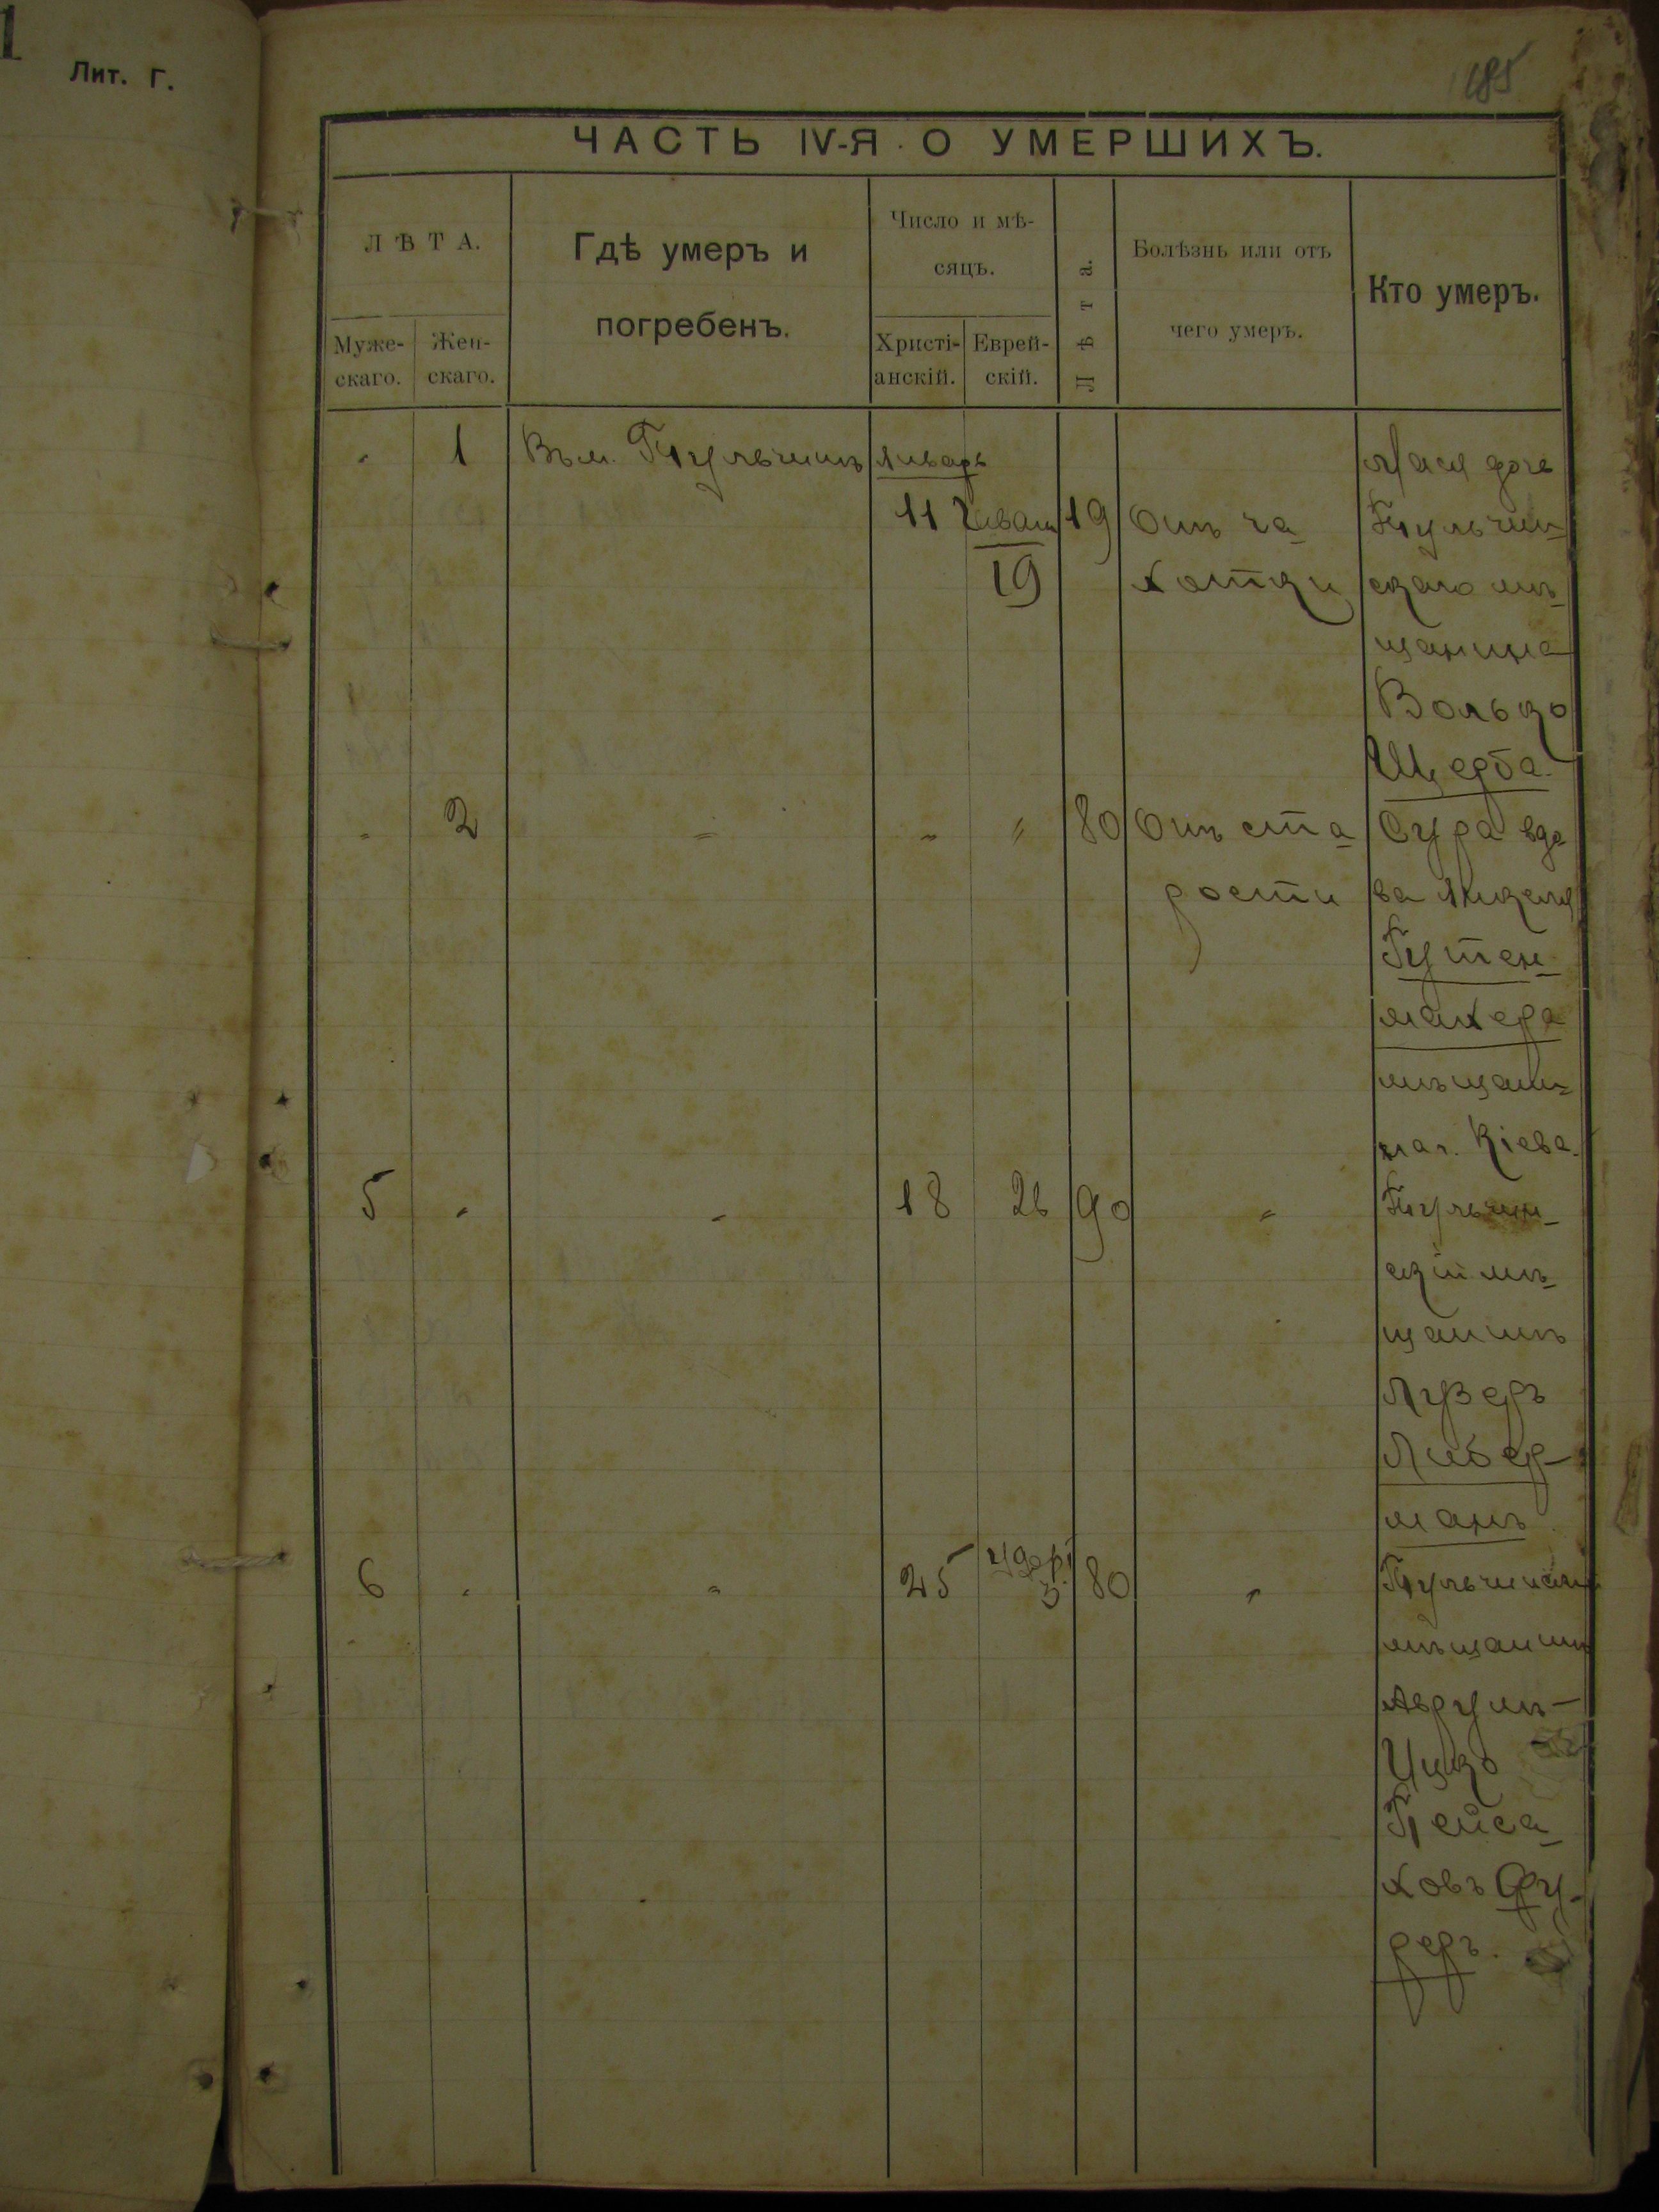 1
Лит. Г.
185
ЧАСТЬ IV-Я О УМЕРШИХЪ.
ЛѢТА.
Муже-
скаго.
Жен-
скаго.
Гдѣ умеръ и
погребенъ.
Число и мѣ-
сяцъ.
Христі-
анскій.
Еврей-
скій.
Лѣта.
Болѣзнь или отъ
чего умеръ.
Кто умеръ.
" 1 Въ м. Тульчинъ январь дочь
11 19 Отъ ча- Тульчин-
19 хотки скаго мѣ-
щанина
Волько
Щерба.
" 2 " " " 80 Отъ ста- Сура вдо
рости ва Янкеля
Гутен-
махера
мѣщани-
на г. Кіева.
5 " " 18 26 90 " Тульчин-
скій мѣ-
щанинъ
Лузеръ
Либер-
манъ
6 " " 25 3 80 " Тульчинскій
мѣщанинъ
Аврумъ-
Ицко
Пейса-
ховъ Фу-
реръ.